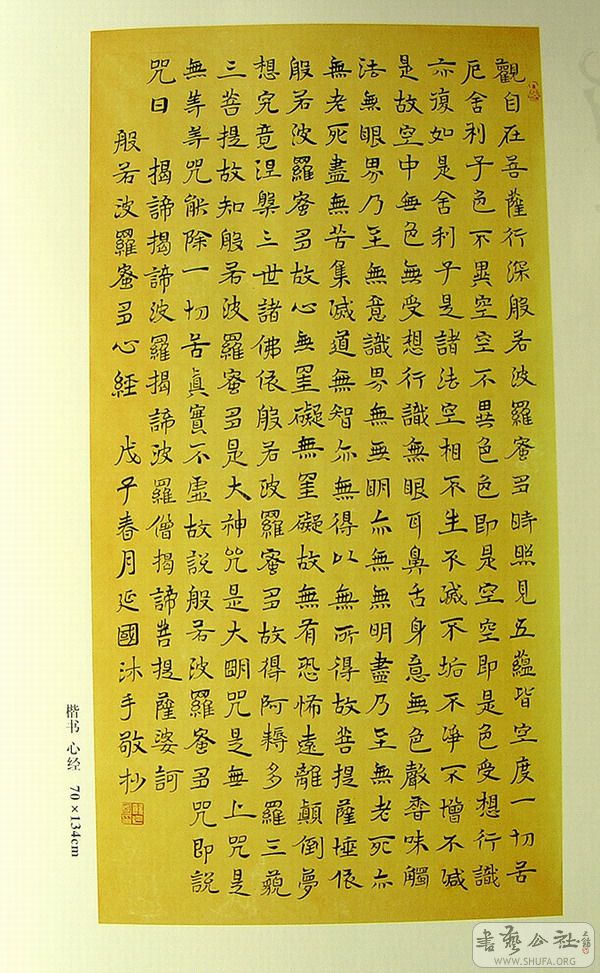 觀自在菩薩行深般若波羅蜜多時照見五蘊皆空度一切苦
厄舍利子色不異空空不異色色即是空空即是色受想行識
亦復如是舍利子是諸法空相不生不滅不垢不淨不增不減
是故空中無色無受想行識無眼耳鼻舌身意無色聲香味觸
法無眼界乃至無意識界無無明亦無無明盡乃至無老死亦
無老死盡無苦集滅道無智亦無得以無所得故菩提薩埵依
般若波羅蜜多故心無罣礙無罣礙故無有恐怖遠離顛倒夢
想究竟涅槃三世諸佛依般若波羅蜜多故得阿耨多羅三藐
三菩提故知般若波羅蜜多是大神咒是大明咒是無上咒是
無等等咒能除一切苦真實不虛故說般若波羅蜜多咒即說
咒曰 揭諦揭諦波羅揭諦波羅僧揭諦菩提薩婆訶
般若波羅蜜多心經 戊子春月延國沐手敬抄
楷书 心经 70×134cm
书艺公社
WWW.SHUFA.ORG